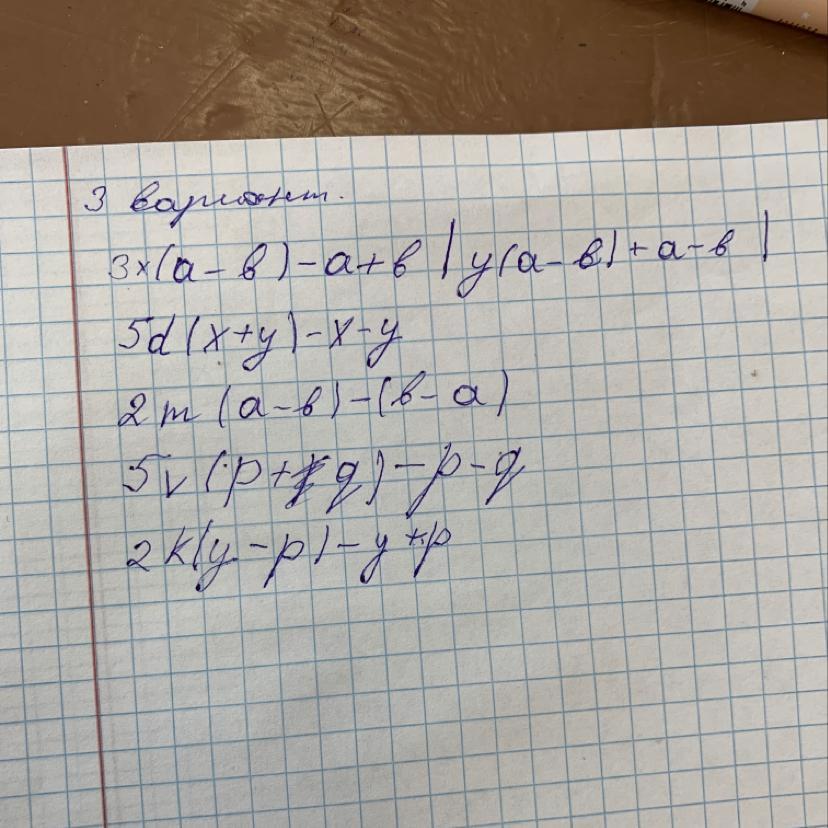 3 вариант.
3x(a-в)-a+в | y(a-в)+a-в |
5d(x+y)-x-y
2m(a-в)-(в-a)
5v(p+q)-p-q
2k(y-p)-y+p